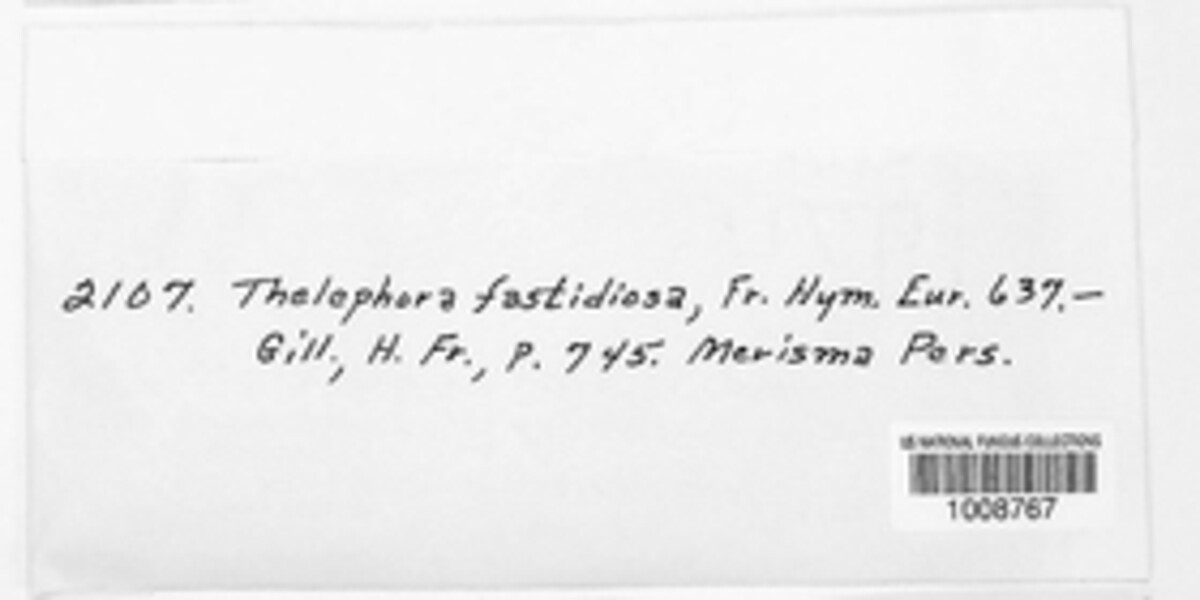 2107. Thelephora fastidiosa, Fr. Hym. Eur. 637.—
Gill., H. Fr., p. 745. Merisma Pers.
US NATIONAL FUNGUS COLLECTIONS
1008767